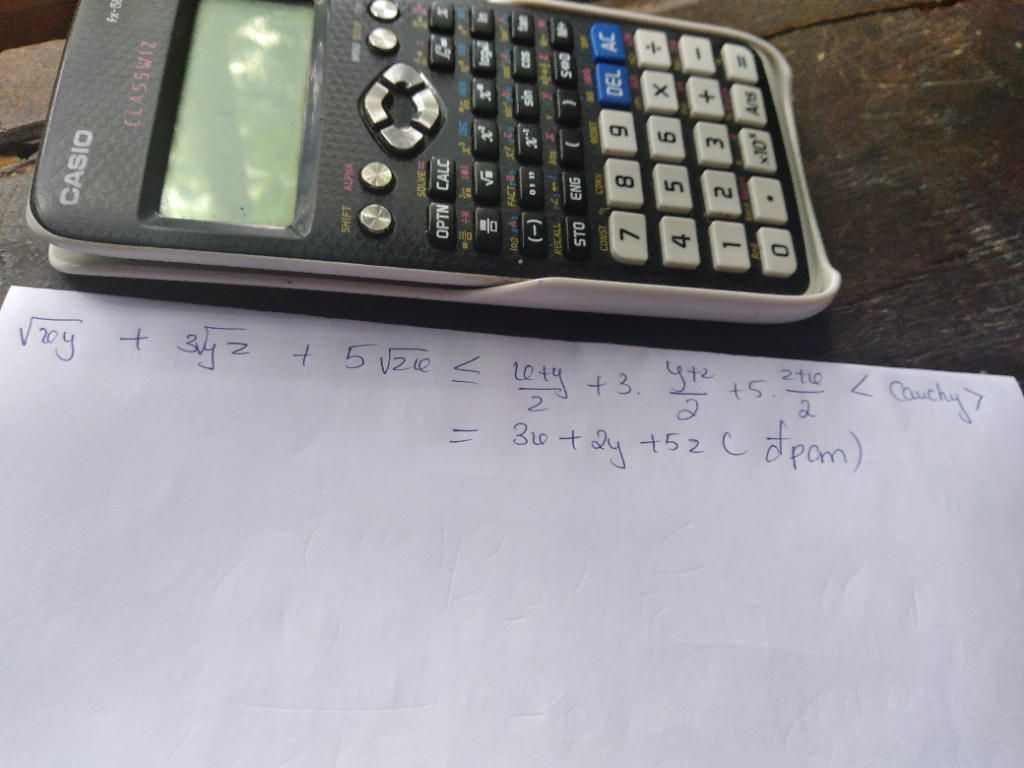 CASIO
fx-58
CLASSWIZ
SHIFT ALPHA
OPTN CALC
SOLVE
log
ln
(-) x⁻¹ sin cos tan
STO ENG ( ) S⇔D M+
RECALL
FACT
CONST CONV RESET
7 8 9 DEL AC
4 5 6 × ÷
1 2 3 + −
0 . ×10ˣ Ans =
√xy + 3√yz + 5√zx ≤ x+y/2 + 3. y+z/2 + 5. z+x/2 < Cauchy >
= 3x + 2y + 5z ( đpcm)